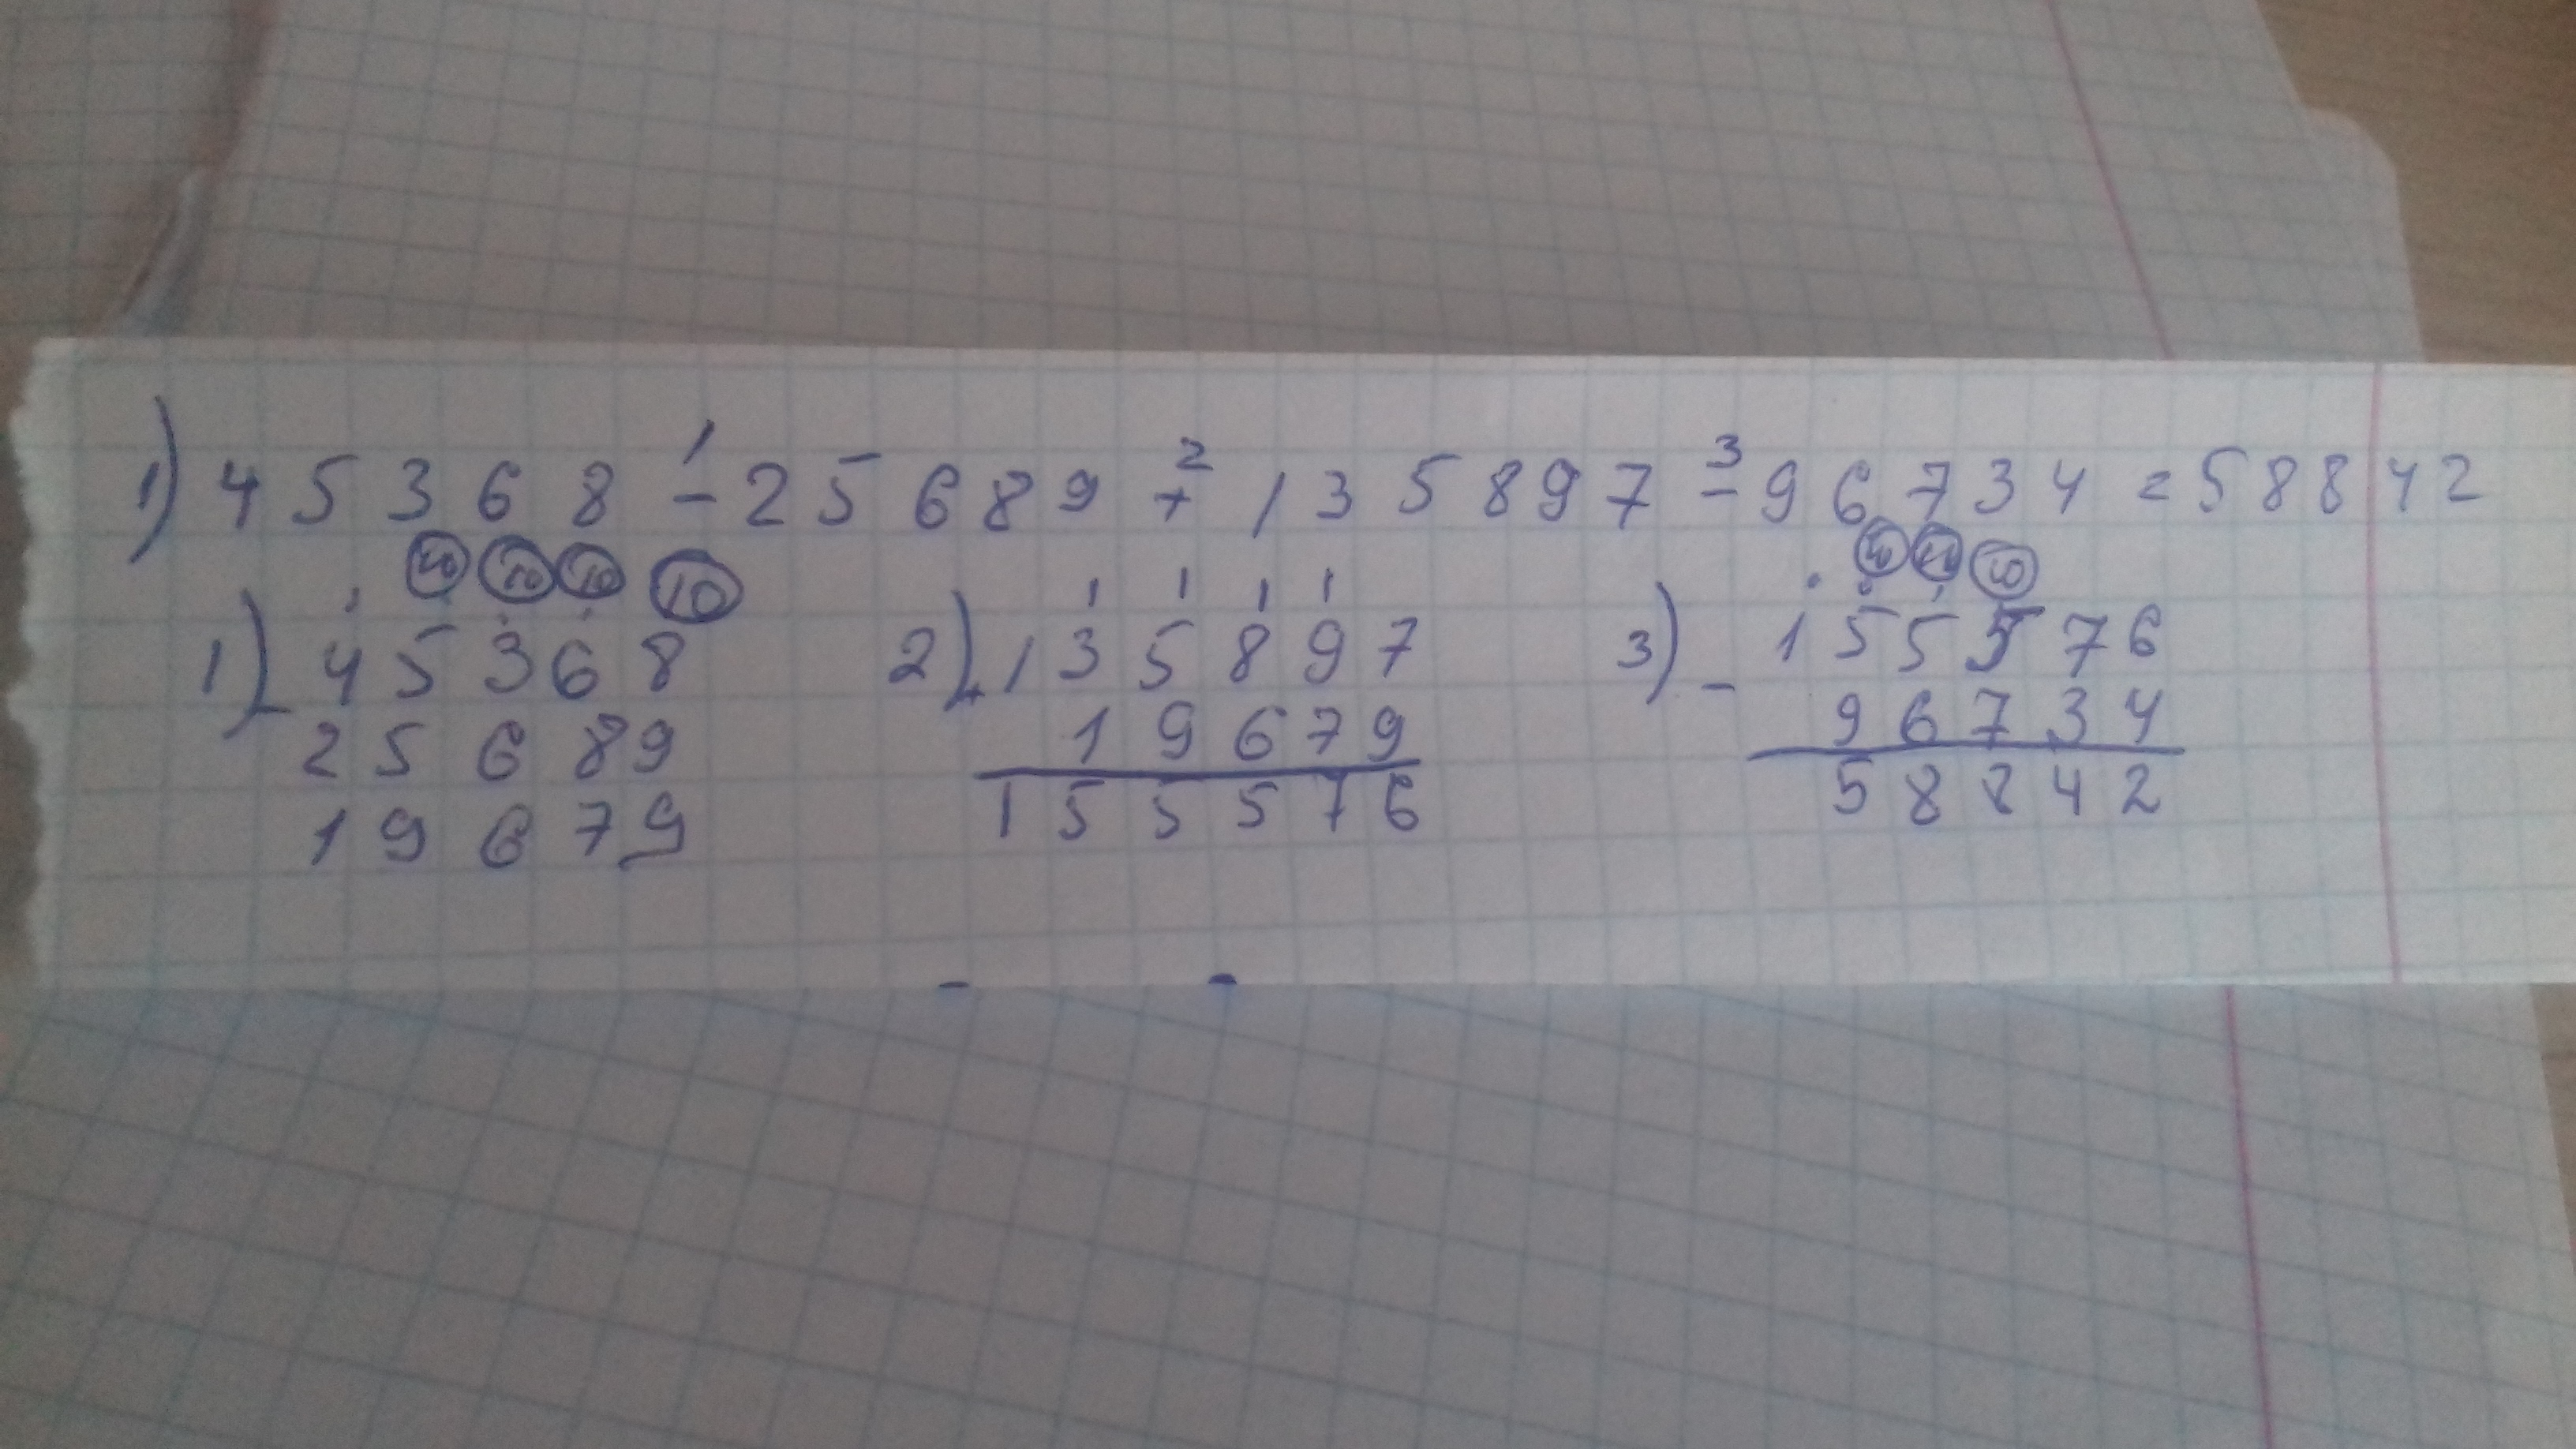 1 2 3
1) 45368 - 25689 + 135897 - 96734 = 58842
10 10 10 10
1) - 45368
25689
19679
1 1 1 1
2) + 135897
19679
155576
10 10 10
3) - 155576
96734
58842